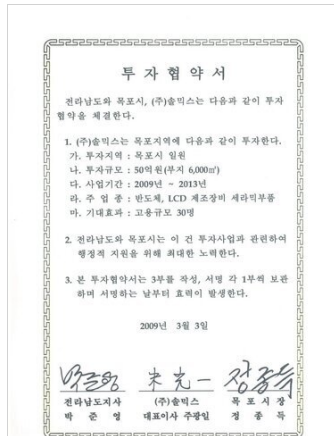 투 자 협 약 서
전라남도와 목포시, (주)솔믹스는 다음과 같이 투자
협약을 체결한다.
1. (주)솔믹스는 목포지역에 다음과 같이 투자한다.
가. 투자지역 : 목포시 일원
나. 투자규모 : 50억원(부지 6,000㎡)
다. 사업기간 : 2009년 ~ 2013년
라. 주 업 종 : 반도체, LCD 제조장비 세라믹부품
마. 기대효과 : 고용규모 30명
2. 전라남도와 목포시는 이 건 투자사업과 관련하여
행정적 지원을 위해 최대한 노력한다.
3. 본 투자협약서는 3부를 작성, 서명 각 1부씩 보관
하며 서명하는 날부터 효력이 발생한다.
2009년 3월 3일
박준영 朱光一 정종득
전라남도지사 (주)솔믹스 목 포 시 장
박 준 영 대표이사 주광일 정 종 득